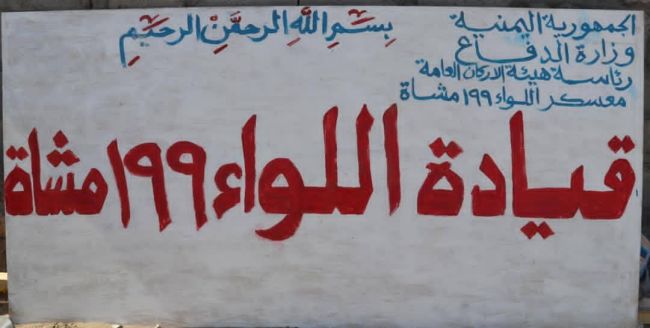 بِسْمِ اللَّهِ الرحمَّنِ الرحيْمِ
الجمهورية اليمنية
وزارة الدفاع
رئاسة هيئة الاركان العامة
معسكر اللواء ١٩٩ مشاة
قيادة اللواء ١٩٩ مشاة